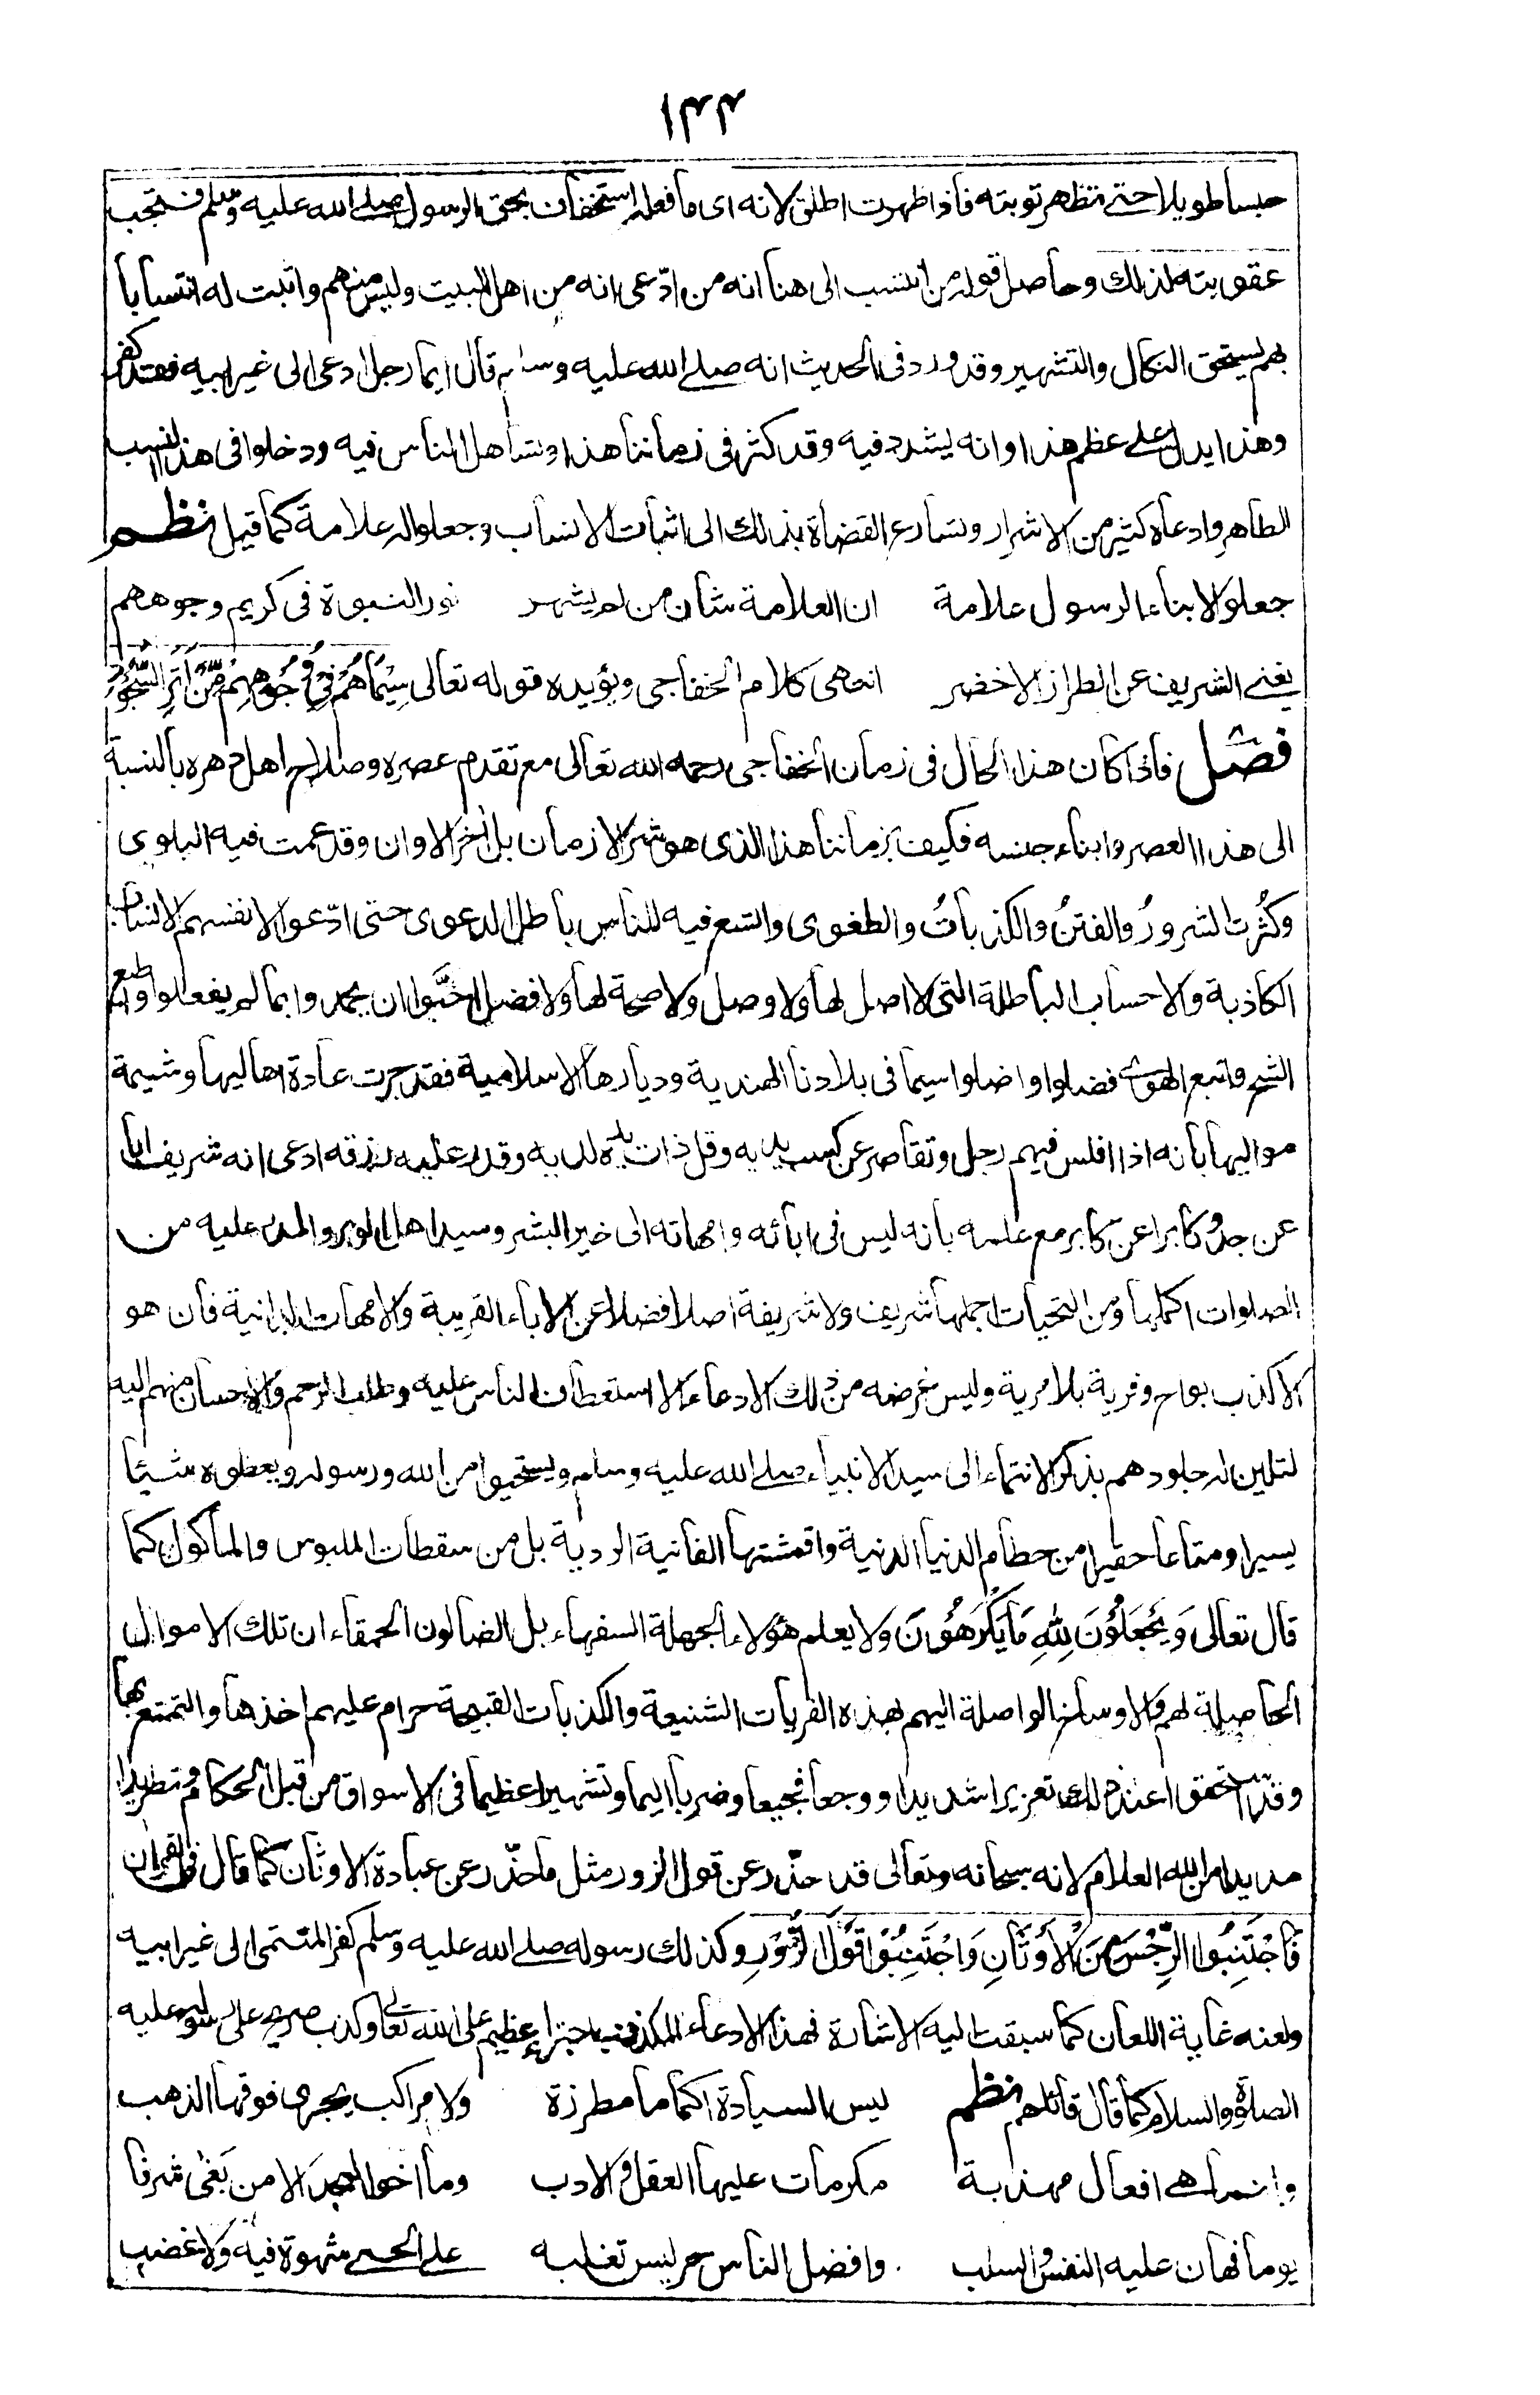 ١٤٤
حبسا طويلا حتى تظهر توبته فاذا ظهرت اطلق لانه اى ما فعله استخفاف بحق الرسول صلے الله عليه وسلم فتجب
عقوبته لذلك وحاصل قوله من انتسب الى هنا انه من ادّعى انه من اهل البيت وليس منهم واثبت له انتسابا
بهم يستحق النكال والتشهير وقد ورد فى الحديث انه صلے الله عليه وسلم قال ايما رجل ادعى الى غير ابيه فقد كفر
وهذا يدل على عظم هذا وانه ليشدد فيه وقد كثر فى زماننا هذا وتساهل الناس فيه ودخلوا فى هذا النسب
الطاهر وادعاه كثير من الاشرار وتسارع القضاة بذلك الى اثبات الانساب وجعلوا له علامة كما قيل نظم
جعلوا لابناء الرسول علامة ان العلامة شان من لم يشهر نور النبوة فى كريم وجوههم
يغنے الشريف عن الطراز الاخضر انتهى كلام الخفاجى ويؤيده قوله تعالى سِيْمَاهُمْ فِىْ وُجُوْهِهِمْ مِّنْ اَثَرِ السُّجُوْدِ
فصل فاذا كان هذا الحال فى زمان الخفاجى رحمه الله تعالى مع تقدم عصره وصلاح اهل دهره بالنسبة
الى هذا العصر وابناء جنسه فكيف بزماننا هذا الذى هو شر الازمان بل اخر الاوان وقد عمت فيه البلوى
وكثُرت الشرورُ والفتنُ والكذباتُ والطغوى واتسع فيه للناس باطل الدعوى حتى ادّعوا لانفسهم الانساب
الكاذبة والاحساب الباطلة التى لا اصل لها ولا وصل ولا صحة لها ولا فضل احبُّوا ان يحمدوا بما لم يفعلوا واطيع
الشح واتبع الهوى فضلوا واضلوا سيما فى بلادنا الهندية وديارها الاسلامية فقد جرت عادة اهاليها وشيمة
مواليها بانه اذا افلس فيهم رجل وتقاصر عن كسب يديه وقل ذات يده لديه وقدر عليه رزقه ادعى انه شريف ابا
عن جد وكابرا عن كابر مع علمه بانه ليس فى ابائه وامهاته الى خير البشر وسيد اهل الوبر والمدر عليه من
الصلوات اكملها ومن التحيات اجملها شريف ولا شريفة اصلا فضلا عن الاباء القريبة والامهات الدانية فان هو
الا كذب بواح وفرية بلا مرية وليس غرضه من ذلك الادعاء الا استعطاف الناس عليه وطلب الرحم والاحسان منهم اليه
لتلين له جلودهم بذكر الانتماء الى سيد الانبياء صلے الله عليه وسلم ويستحيوا من الله ورسوله ويعطوه شيئا
يسيرا ومتاعا حقيرا من حطام الدنيا الدنية واقمشتها الفانية الردية بل من سقطات الملبوس والماكول كما
قال تعالى وَيَجْعَلُوْنَ لِلّٰهِ مَا يَكْرَهُوْنَ ولا يعلم هؤلاء الجهلة السفهاء بل الضالون الحمقاء ان تلك الاموال
الحاصلة لهم والاوساخ الواصلة اليهم بهذه الفريات الشنيعة والكذبات القبيحة حرام عليهم اخذها والتمتع بها
وقد استحقوا عند ذلك تعزيرا شديدا ووجعا فجيعا وضربا اليما وتشهيرا عظيما فى الاسواق من قبل الحكام وتطريدا
مديدا من الله العلام لانه سبحانه وتعالى قد حذّر عن قول الزور مثل ما حذّر عن عبادة الاوثان كما قال فى القران
فَاجْتَنِبُوا الرِّجْسَ مِنَ الْاَوْثَانِ وَاجْتَنِبُوْا قَوْلَ الزُّوْرِ وكذلك رسوله صلے الله عليه وسلم كفر المنتمى الى غير ابيه
ولعنه غاية اللعان كما سبقت اليه الاشارة فهذا الادعاء اجتراء عظيم على الله تعالى وكذب صريح على رسوله عليه
الصلوة والسلام كما قال قائلهم نظم ليس السيادة اكماما مطرزة ولا مراكب يجرى فوقها الذهب
وانما هى افعال مهذبة مكرمات عليها العقل والادب وما اخو المجد الا من بَغٰى شرفا
يوما فهان عليه النفس والسلب وافضل الناس حر ليس تغلبه على الحجى شهوة فيه ولا غضب